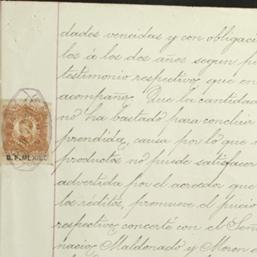 dados vencidas y con obligaci
los á los dos años segun p
testimonio respectivo que en
acompaño. Que la cantidad
no ha bastado para concluir
prendida, causa por lo que n
productos no puede satisfacer
advertida por el acreedor que
los réditos, promueve el juicio
respectivo, concerto con el Señ
nacio Maldonado y Moron e
D. F. MEXICO